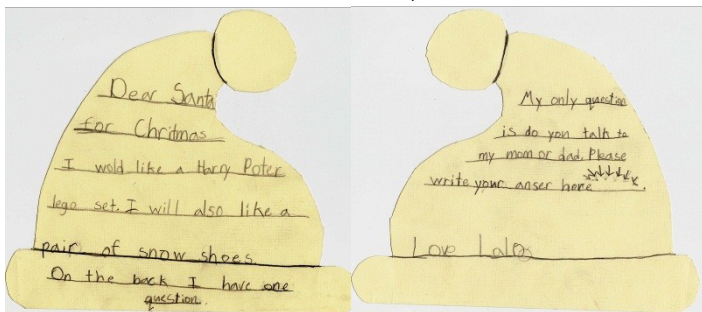 Dear Santa
for Chritmas
I wold like a Harry Poter
lego set. I will also like a
pair of snow shoes.
On the back I have one
question.
My only question
is do you talk to
my mom or dad. Please
write your anser here
Love